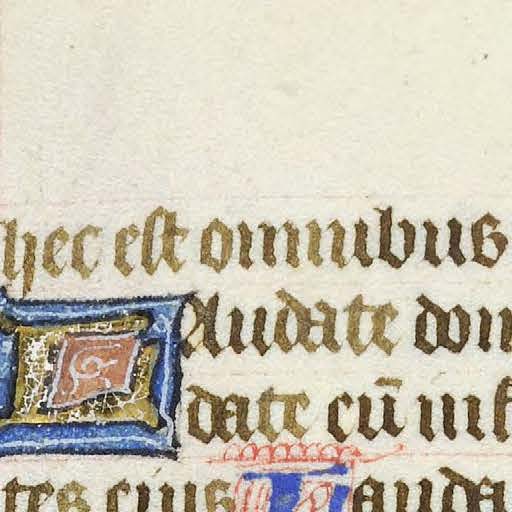 hec est omnibus
Laudate dom
date cū in f
tes eius Lauda